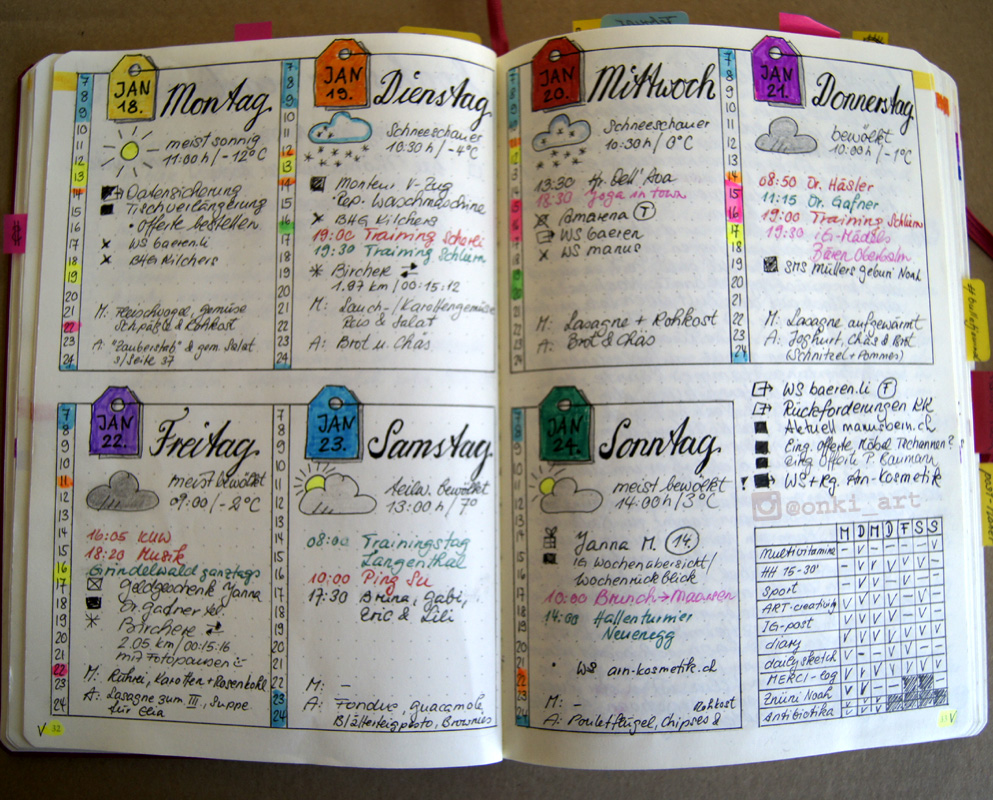 JAN
18.
Montag
meist sonnig
11:00 h / -12°C
Datensicherung
Tischverlängerung
• Offerte bestellen
WS baeren.li
BHG Kilchers
M: Fleischvogel, gemüse
Schpätzle & Rohkost
A: "Zauberstab" & gem. Salat
s/Seite 37
7
8
9
10
11
12
13
14
15
16
17
18
19
20
21
22
23
24
JAN
19.
Dienstag
Schneeschauer
10:30 h / -4°C
Monteur V-Zug
• Rep. Waschmaschine
BHG Kilchers
19:00 Training Scherli
19:30 Training Schliern
Birchere
1.97 km | 00:15:12
M: Lauch-/Karottengemüse
Reis & Salat
A: Brot u. Chäs
7
8
9
10
11
12
13
14
15
16
17
18
19
20
21
22
23
24
JAN
20.
Mittwoch
Schneeschauer
10:30 h / 0°C
13:30 Hr. Dell'Ava
18:30 Yoga in town
Amavena T
WS baeren
WS manus
M: Lasagne + Rohkost
A: Brot & Chäs
7
8
9
10
11
12
13
14
15
16
17
18
19
20
21
22
23
24
JAN
21.
Donnerstag
bewölkt
10:00 h / -1°C
08:50 Dr. Häsler
11:15 Dr. Gafner
19:00 Training Schliern
19:30 IG-Mädels
Bären Oberbalm
SMS Müllers gebun Noah
M: Lasagne aufgewärmt
A: Joghurt, Chäs & Brot
(Schnitzel + Pommes)
7
8
9
10
11
12
13
14
15
16
17
18
19
20
21
22
23
24
JAN
22.
Freitag
meist bewölkt
09:00 / -2°C
16:05 KUW
18:20 Musik
Grindelwald ganztags
Geldgeschenk Janna
Dr. Gafner tel.
Birchere
2.05 km | 00:15:16
mit Fotopausen
M: Rahmei, Karotten + Rosenkohl
A: Lasagne zum III, Suppe
für Elia
7
8
9
10
11
12
13
14
15
16
17
18
19
20
21
22
23
24
JAN
23.
Samstag
teilw. bewölkt
13:00 h / 7°
08:00 Trainingstag
Langenthal
10:00 Ping Su
17:30 Bruna, Gabi,
Eric & Lili
M: –
A: Fondue, Guacamole
Blätterteigpesto, Brownies
7
8
9
10
11
12
13
14
15
16
17
18
19
20
21
22
23
24
JAN
24.
Sonntag
meist bewölkt
14:00 h / 3°C
Janna M. 14
IG Wochenabersicht /
Wochenrückblick
10:00 Brunch → Maassen
14:00 Hallenturnier
Neuenegg
• WS ain-kosmetik.ch
M: –
Rohkost
A: Pouletflügel, Chipses &
7
8
9
10
11
12
13
14
15
16
17
18
19
20
21
22
23
24
WS baeren.li F
Rückforderungen KK
Aktuell manusbein.ch
Eing. Offerte Möbel Tschannen?
eing Offerte P. Baumann
! WS + Rg. Ain-Kosmetik
@onki_art
M D M D F S S
Multivitamine
HH 15-30'
Sport
ART-creativity
IG-post
diary
daily sketch
MERCI-log
Znüni Noah
Antibiotika
32
33